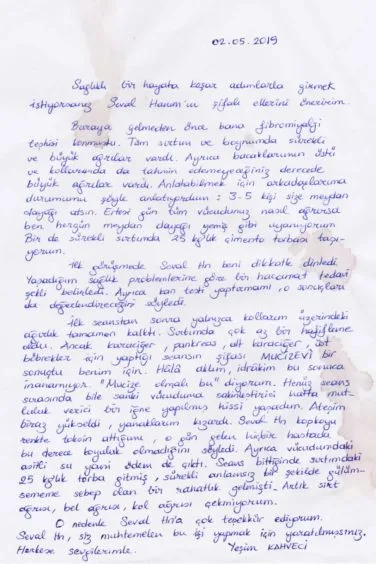 02.05.2019
Sağlıklı bir hayata koşar adımlarla girmek
istiyorsanız Seval Hanım'ın şifalı ellerini öneririm.
Buraya gelmeden önce bana fibromiyalji
teşhisi konmuştu. Tüm sırtım ve boynumda sürekli
ve büyük ağrılar vardı. Ayrıca bacaklarımın üstü
ve kollarımda da tahmin edemeyeceğiniz derecede
büyük ağrılar vardı. Anlatabilmek için arkadaşlarıma
durumumu şöyle anlatıyordum : 3-5 kişi size meydan
dayağı atsın. Ertesi gün tüm vücudunuz nasıl ağrırsa
ben hergün meydan dayağı yemiş gibi uyanıyorum
Bir de sürekli sırtımda 25 kg'lık çimento torbası taşı-
yorum.
İlk görüşmede Seval Hn beni dikkatle dinledi.
Yaşadığım sağlık problemlerine göre bir hacamat tedavi
şekli belirledi. Ayrıca kan testi yaptırmamı, o sonuçları
da değerlendireceğini söyledi.
İlk seanstan sonra yalnızca kollarım üzerindeki
ağırlık tamamen kalktı. Sırtımda çok az bir hafifleme
oldu. Ancak karaciğer, pankreas, alt karaciğer,
böbrekler için yaptığı seansın şifası MUCİZEVİ bir
sonuçtu benim için. Hâlâ aklım, idrâkim bu sonuca
inanamıyor. "Mucize olmalı bu" diyorum. Henüz seans
sırasında bile sanki vücuduma sakinleştirici hatta mut-
luluk verici bir iğne yapılmış hissi yaşadım. Ateşim
biraz yükseldi, yanaklarım kızardı. Seval Hn kopkoyu
renkte toksin attığımı, o gün gelen hiçbir hastada
bu derece koyuluk olmadığını söyledi. Ayrıca vücudumdaki
asitli su yani ödem de çıktı. Seans bittiğinde sırtımdaki
25 kg'lık torba gitmiş, sürekli anlamsız bir şekilde gülüm-
sememe sebep olan bir rahatlık gelmişti. Artık sırt
ağrısı, bel ağrısı, kol ağrısı çekmiyorum.
O nedenle Seval Hn'a çok teşekkür ediyorum.
Seval Hn, siz muhtemelen bu işi yapmak için yaratılmışsınız.
Herkese sevgilerimle. Yeşim KAHVECİ